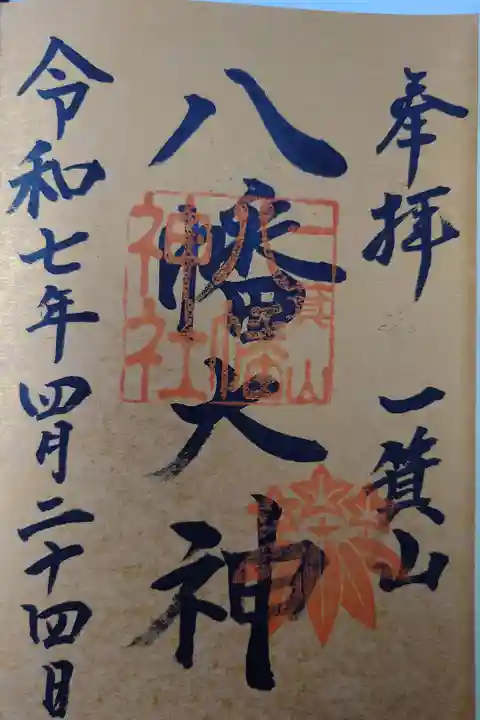 奉拝 一箕山
八幡大神
一箕山八幡神社
令和七年四月二十四日